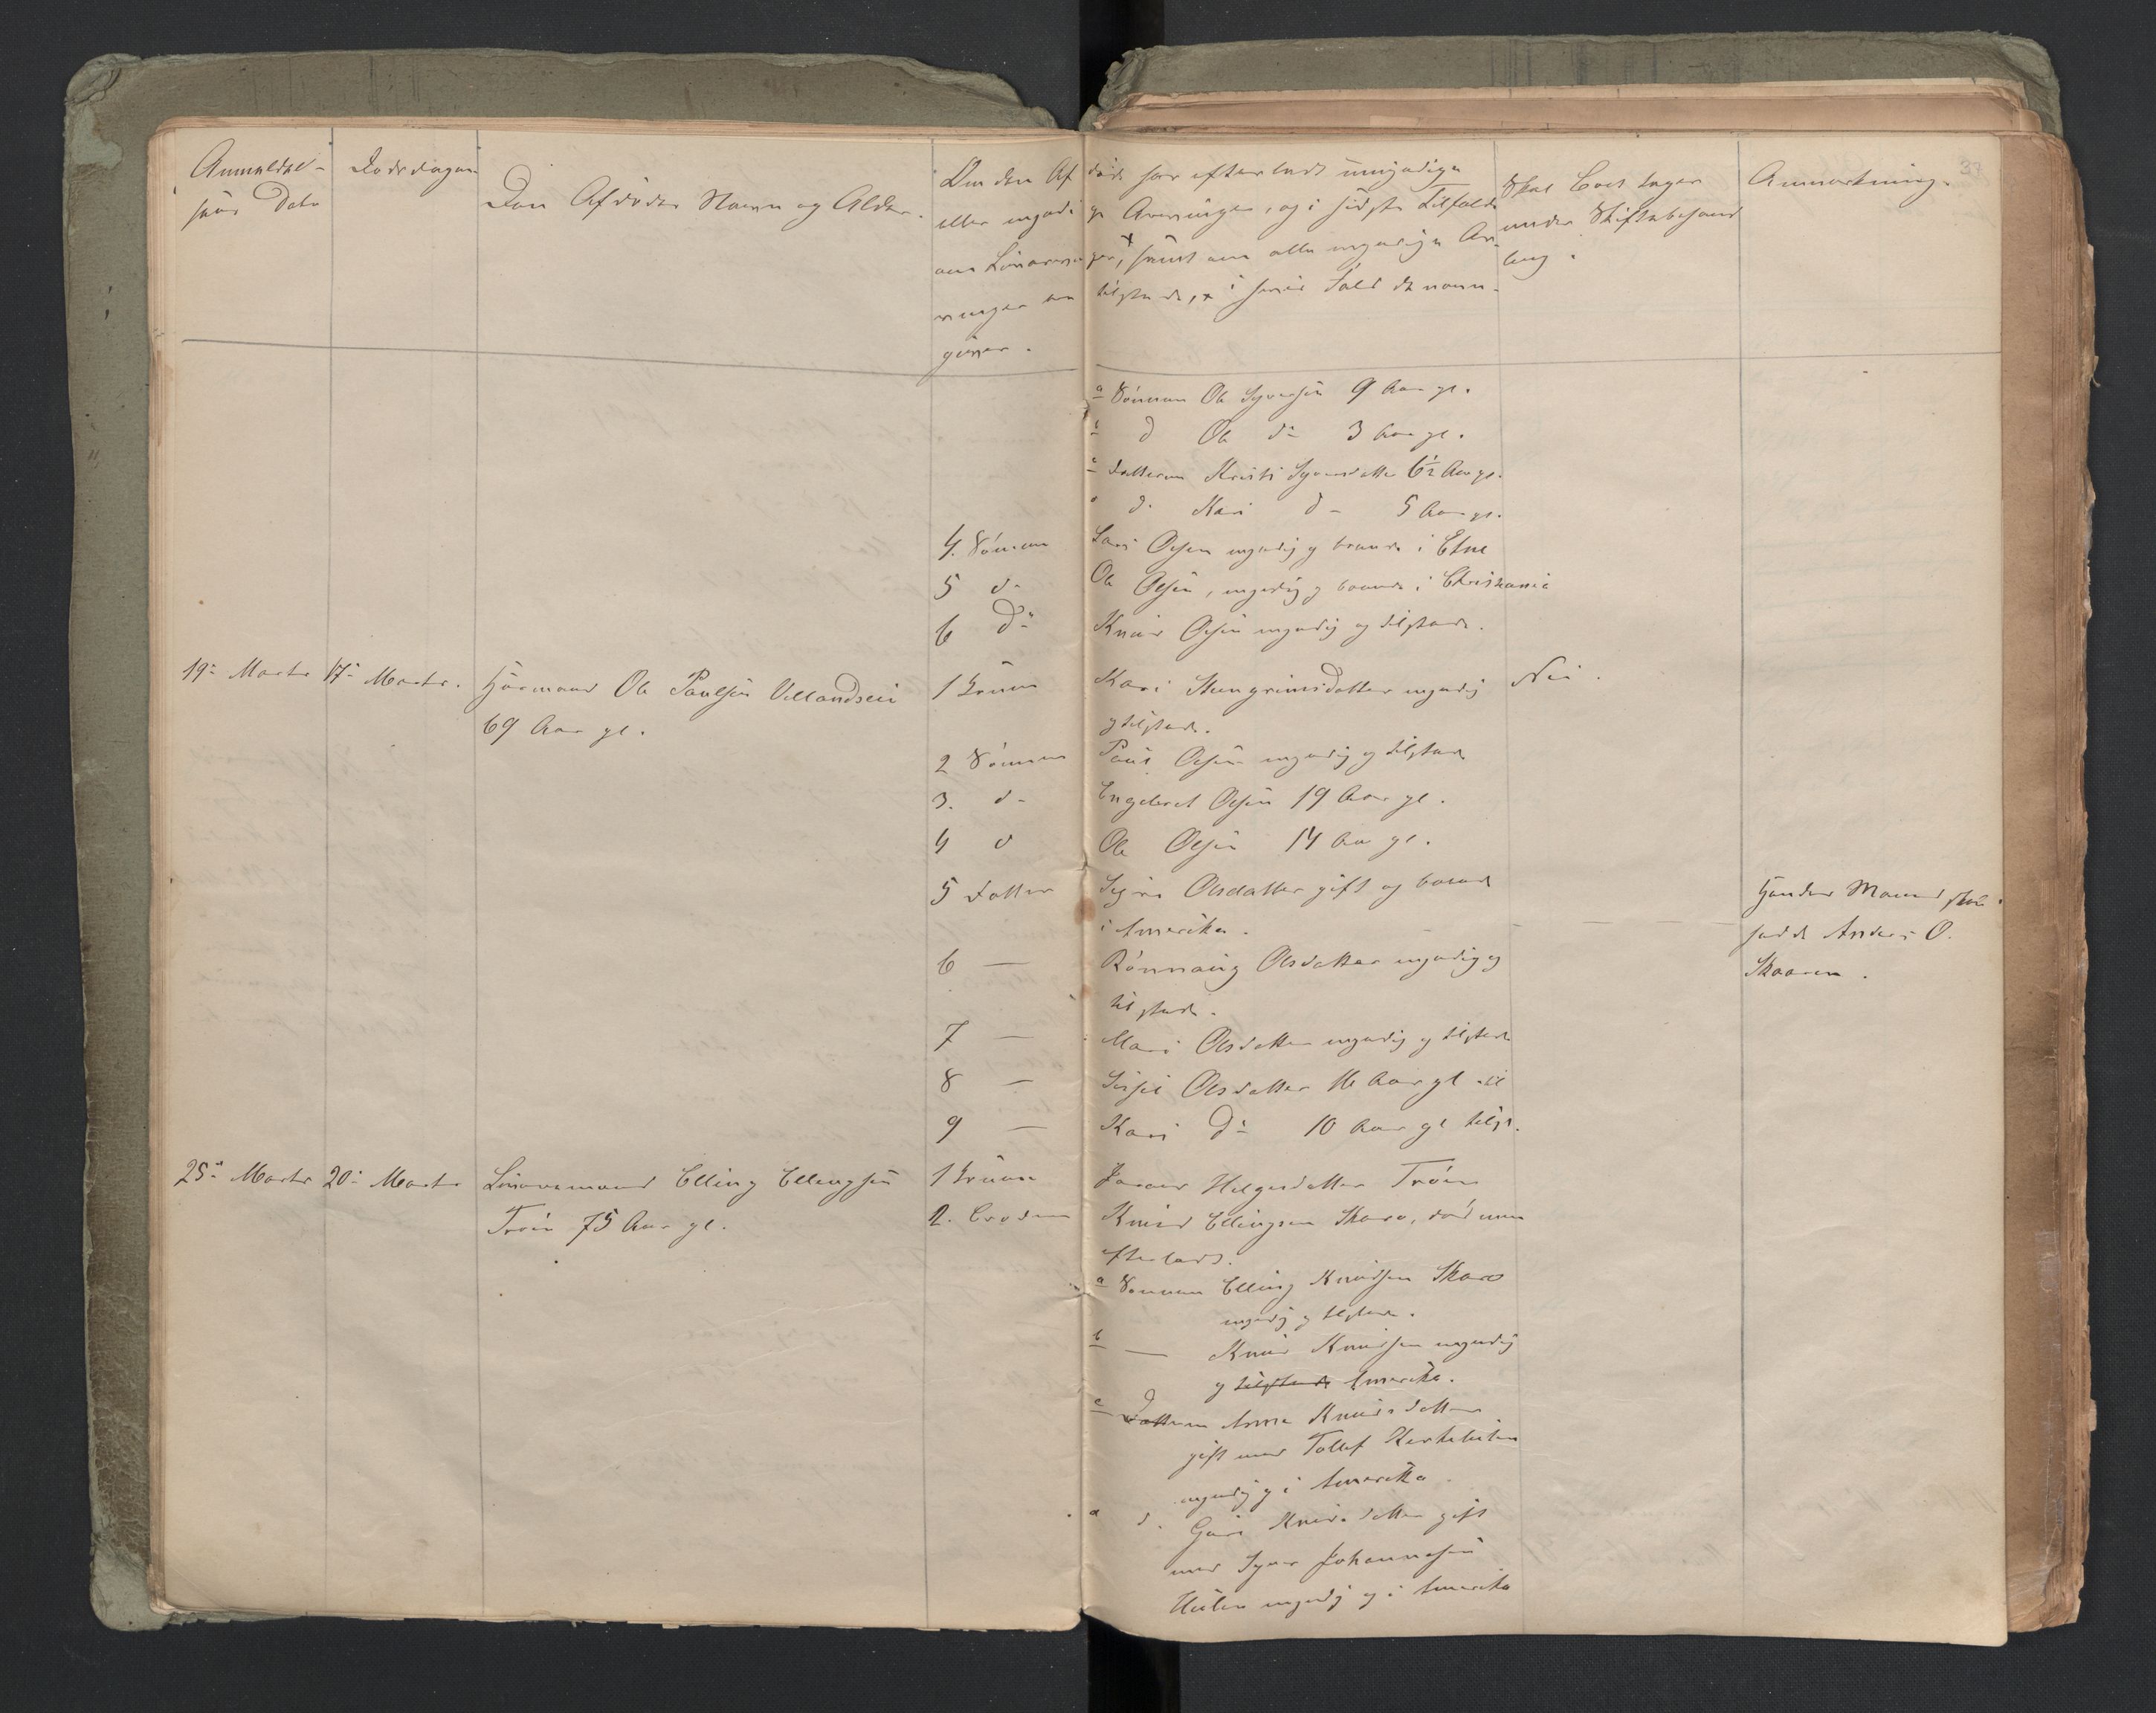 37
Anmeldel-
sens Dato
Dødsdagen
Den Afdødes Navn og Alder.
Om den Afdøde har efterladt umyndige
eller myndige Arvinger, og i sidste Tilfælde
om Livsarvinger, + samt om alle myndige Ar-
vinger ere tilstede, + i hvis Fald de navn-
gives.
Skal Boet tages
under Skiftebehand
ling.
Anmærkning.
a Sønnen Ole Syversen 9 Aar gl.
b d Ole do 3 Aar gl.
c Datteren Kristi Syversdatter 6½ Aar gl.
d. Kari d- 5 Aar gl.
4. Sønnen Lars Olsen myndig og boende i Etne
5 d- Ole Olsen, myndig og boende i Christiania
6 Do Knud Olsen myndig og tilstede.
19de Marts 17de Marts. Huusmand Ole Paulsen Villandseie 1 Enken Kari Stengrimsdatter myndig Nei.
69 Aar gl. og tilstede.
2 Sønnen Paul Olsen myndig og tilstede
3. d- Engebret Olsen 19 Aar gl.
4 d Ole Olsen 14 Aar gl.
5 Datter Sigri Olsdatter gift og boende
i Amerika.
Hendes Mand skal
hedde Anders O.
Skaaren.
6 — Rønnaug Olsdatter myndig og
tilstede.
7 — Mari Olsdatter myndig og tilstede
8 — Sissel Olsdatter 16 Aar gl. til
9 — Kari Do 10 Aar gl tilst.
25de Marts 20de Marts Livøremand Elling Ellingsen 1 Enken Helgesdatter Trøim
Trøim 75 Aar gl. 2. Broder Knud Ellingsen Skaro, død men
efterladt.
a Sønnen Elling Knudsen Skaro
myndig og tilstede.
b — Knud Knudsen myndig
og tilstede Amerika.
c Datteren Anne Knudsdatter
gift med Tollef
myndig og i Amerika.
d d. Guri Knudsdatter gift
med Syver Johannesen
myndig og i Amerika